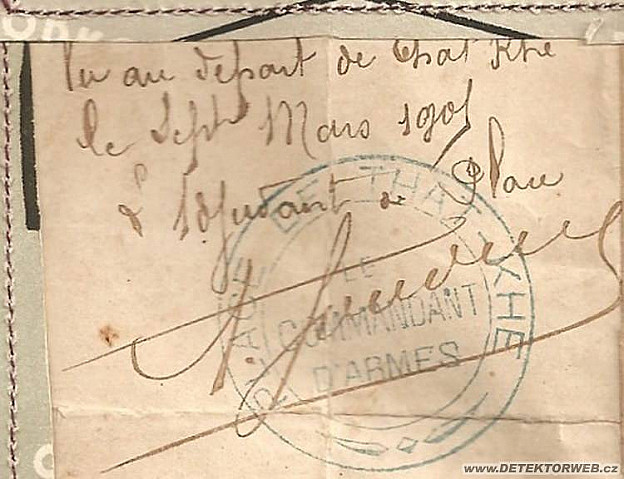 Vu au départ de That Khé
le Sept Mars 1905
L'adjudant de Place
PLACE DE THAT-KHE
LE
COMMANDANT
D'ARMES
WWW.DETEKTORWEB.CZ